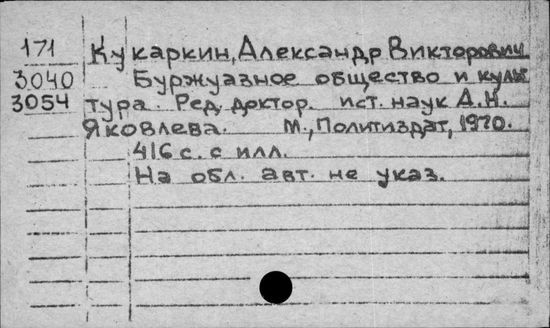 171 Кукаркин, Александр Викторович
3040 Буржуазное общество и куль
3054 тура. Ред. доктор. ист. наук А.Н.
Яковлева. М., Политиздат, 1970.
416 с. с илл.
На обл. авт. не указ.